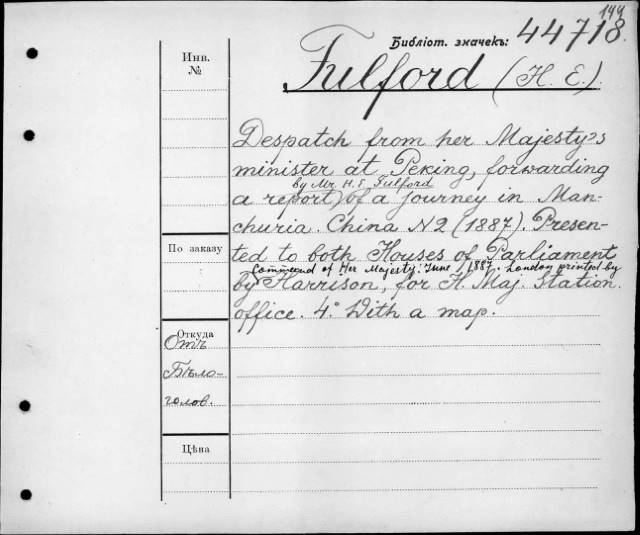 144
Библіот. значекъ: 44718.
Fulford (H. E.).
Инв. №
Despatch from her Majesty's
minister at Peking, forwarding
by Mr. H. E. Fulford
a report) of a journey in Man-
churia. China N2 (1887). Presen-
По заказу
ted to both Houses of Parliament
Command of Her Majesty. June, 1887. London printed by
by Harrison, for H. Maj. Station.
office. 4° With a map.
Откуда
Отъ
Бѣло-
голов.
Цѣна